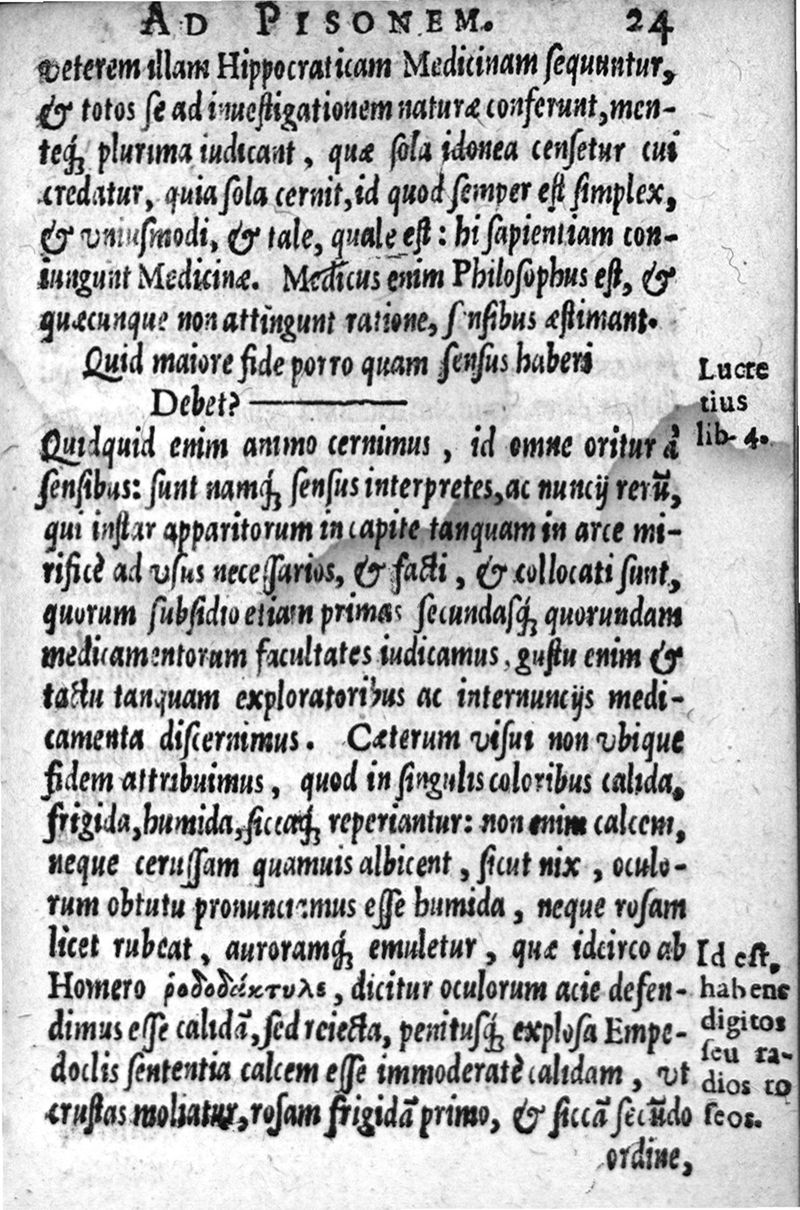 AD PISONEM. 24
veterem illam Hippocraticam Medicinam sequuntur,
& totos se ad inuestigationem naturæ conferunt, men-
teq́; plurima iudicant, quæ sola idonea censetur cui
credatur, quia sola cernit, id quod semper est simplex,
& vniusmodi, & tale, quale est: hi sapientiam con-
iungunt Medicinæ. Medicus enim Philosophus est, &
quæcunque non attingunt ratione, sensibus æstimant.
Quid maiore fide porro quam sensus haberi
Debet? ———
Lucre
tius
lib. 4.
Quidquid enim animo cernimus, id omne oritur à
sensibus: sunt namq́; sensus interpretes, ac nuncij rerū,
qui instar apparitorum in capite tanquam in arce mi-
rificè ad vsus necessarios, & facti, & collocati sunt,
quorum subsidio etiam primas secundasq́; quorundam
medicamentorum facultates iudicamus, gustu enim &
tactu tanquam exploratoribus ac internuncijs medi-
camenta discernimus. Cæterum visui non vbique
fidem attribuimus, quod in singulis coloribus calida,
frigida, humida, siccaq́; reperiantur: non enim calcem,
neque cerussam quamuis albicent, sicut nix, oculo-
rum obtutu pronunciamus esse humida, neque rosam
licet rubeat, auroramq́; emuletur, quæ idcirco ab
Homero ῥοδοδάκτυλε, dicitur oculorum acie defen-
dimus esse calidā, sed reiecta, penitusq́; explosa Empe-
doclis sententia calcem esse immoderatè calidam, vt
crustas moliatur, rosam frigidā primo, & siccā secūdo
ordine,
Id est,
habens
digitos
seu ra-
dios ro
seos.